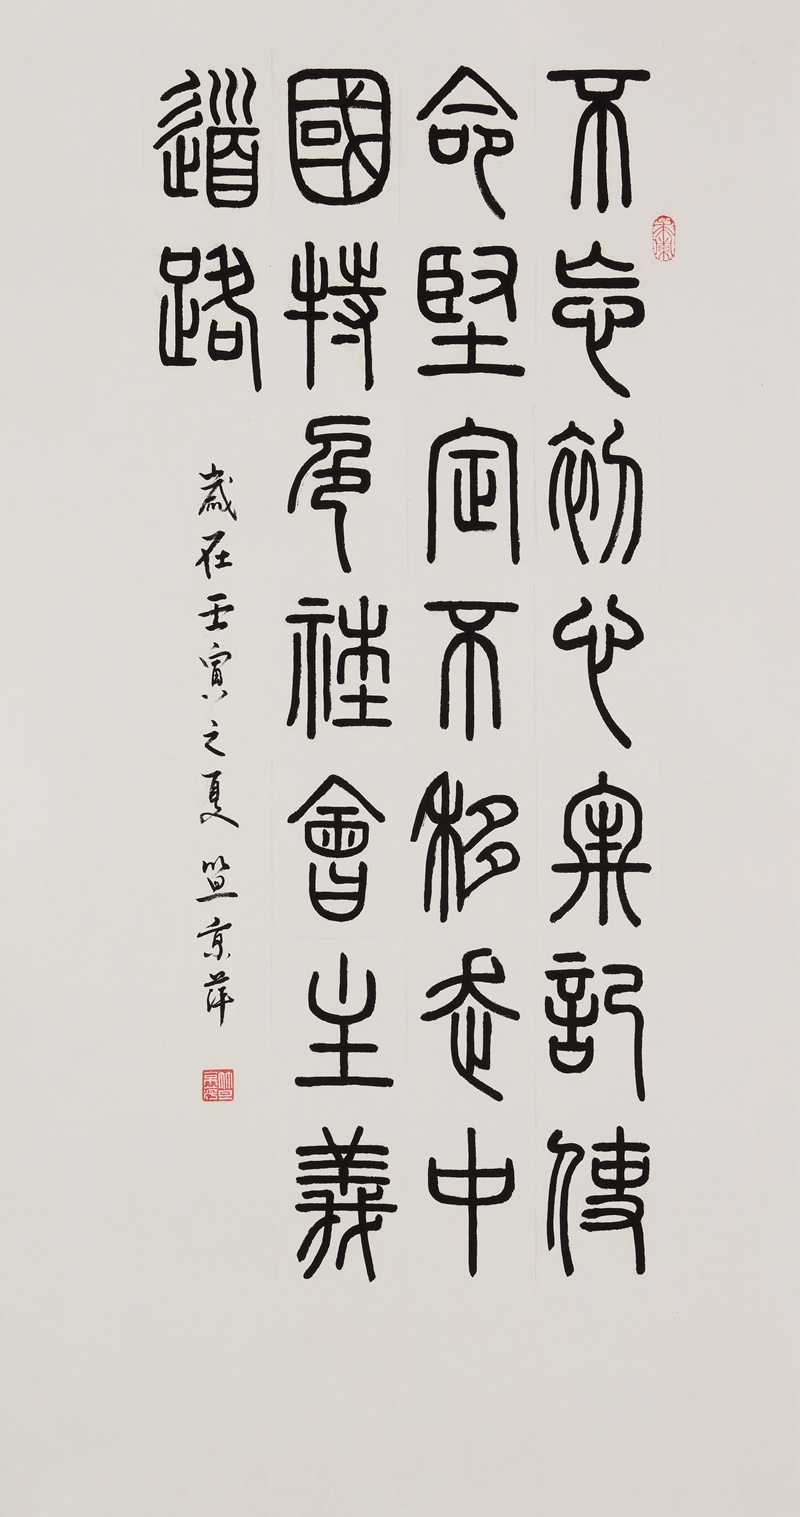 不忘初心牢記使
命堅定不移走中
國特色社會主義
道路
歲在壬寅之夏 竺京萍